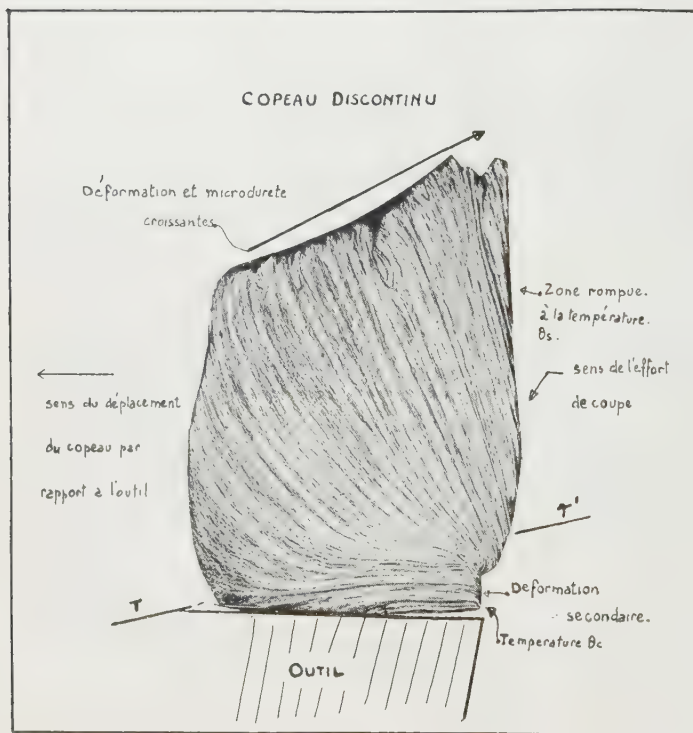 COPEAU DISCONTINU
Déformation et microdureté
croissantes.
Zone rompue.
à la température.
θs.
sens de l'effort
de coupe
sens du déplacement
du copeau par
rapport a l'outil
T'
T
Deformation
secondaire.
Temperature θc
OUTIL